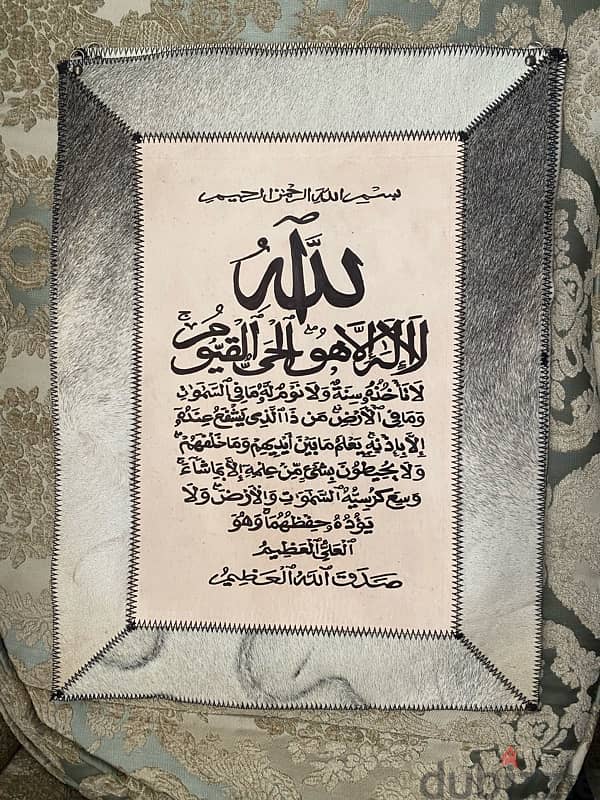 بسم الله الرحمن الرحيم
ٱللَّهُ
لَا إِلَٰهَ إِلَّا هُوَ ٱلْحَىُّ ٱلْقَيُّومُ ۚ
لَا تَأْخُذُهُ سِنَةٌ وَلَا نَوْمٌ لَّهُ مَا فِي ٱلسَّمَٰوَٰتِ
وَمَا فِي ٱلْأَرْضِ ۗ مَن ذَا ٱلَّذِى يَشْفَعُ عِندَهُ
إِلَّا بِإِذْنِهِ ۚ يَعْلَمُ مَا بَيْنَ أَيْدِيهِمْ وَمَا خَلْفَهُمْ ۖ
وَلَا يُحِيطُونَ بِشَىْءٍ مِّنْ عِلْمِهِ إِلَّا بِمَا شَاءَ ۚ
وَسِعَ كُرْسِيُّهُ ٱلسَّمَٰوَٰتِ وَٱلْأَرْضَ ۖ وَلَا
يَؤُدُهُ حِفْظُهُمَا ۚ وَهُوَ
ٱلْعَلِىُّ ٱلْعَظِيمُ
صَدَقَ ٱللَّهُ ٱلْعَظِيمُ